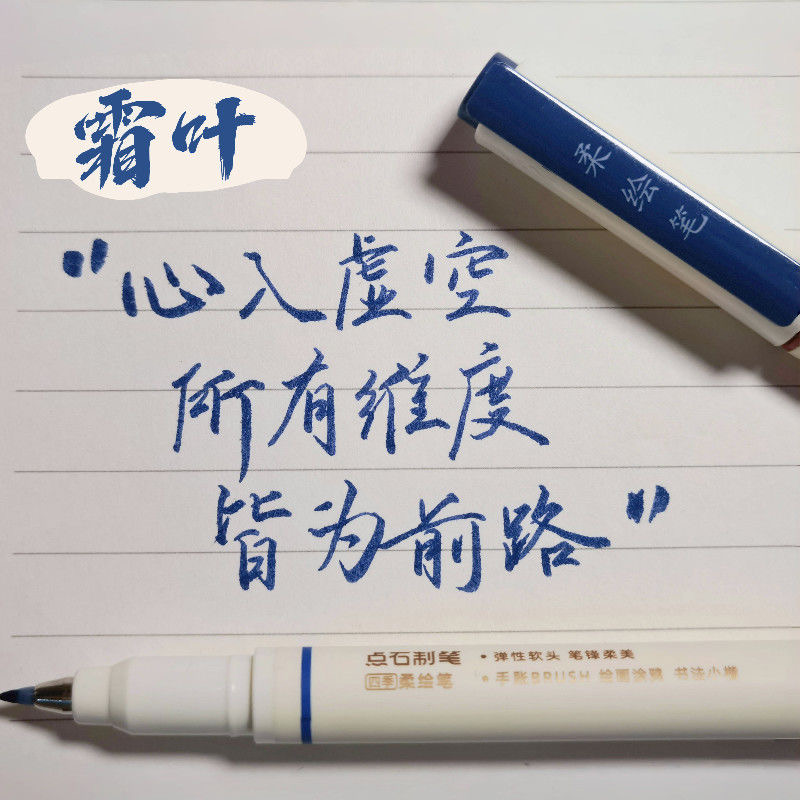 霜叶
柔绘笔
"心入虚空
所有维度
皆为前路"
点石制笔 • 弹性软头 笔锋柔美
四季柔绘笔 • 手账BRUSH 绘画涂鸦 书法小楷